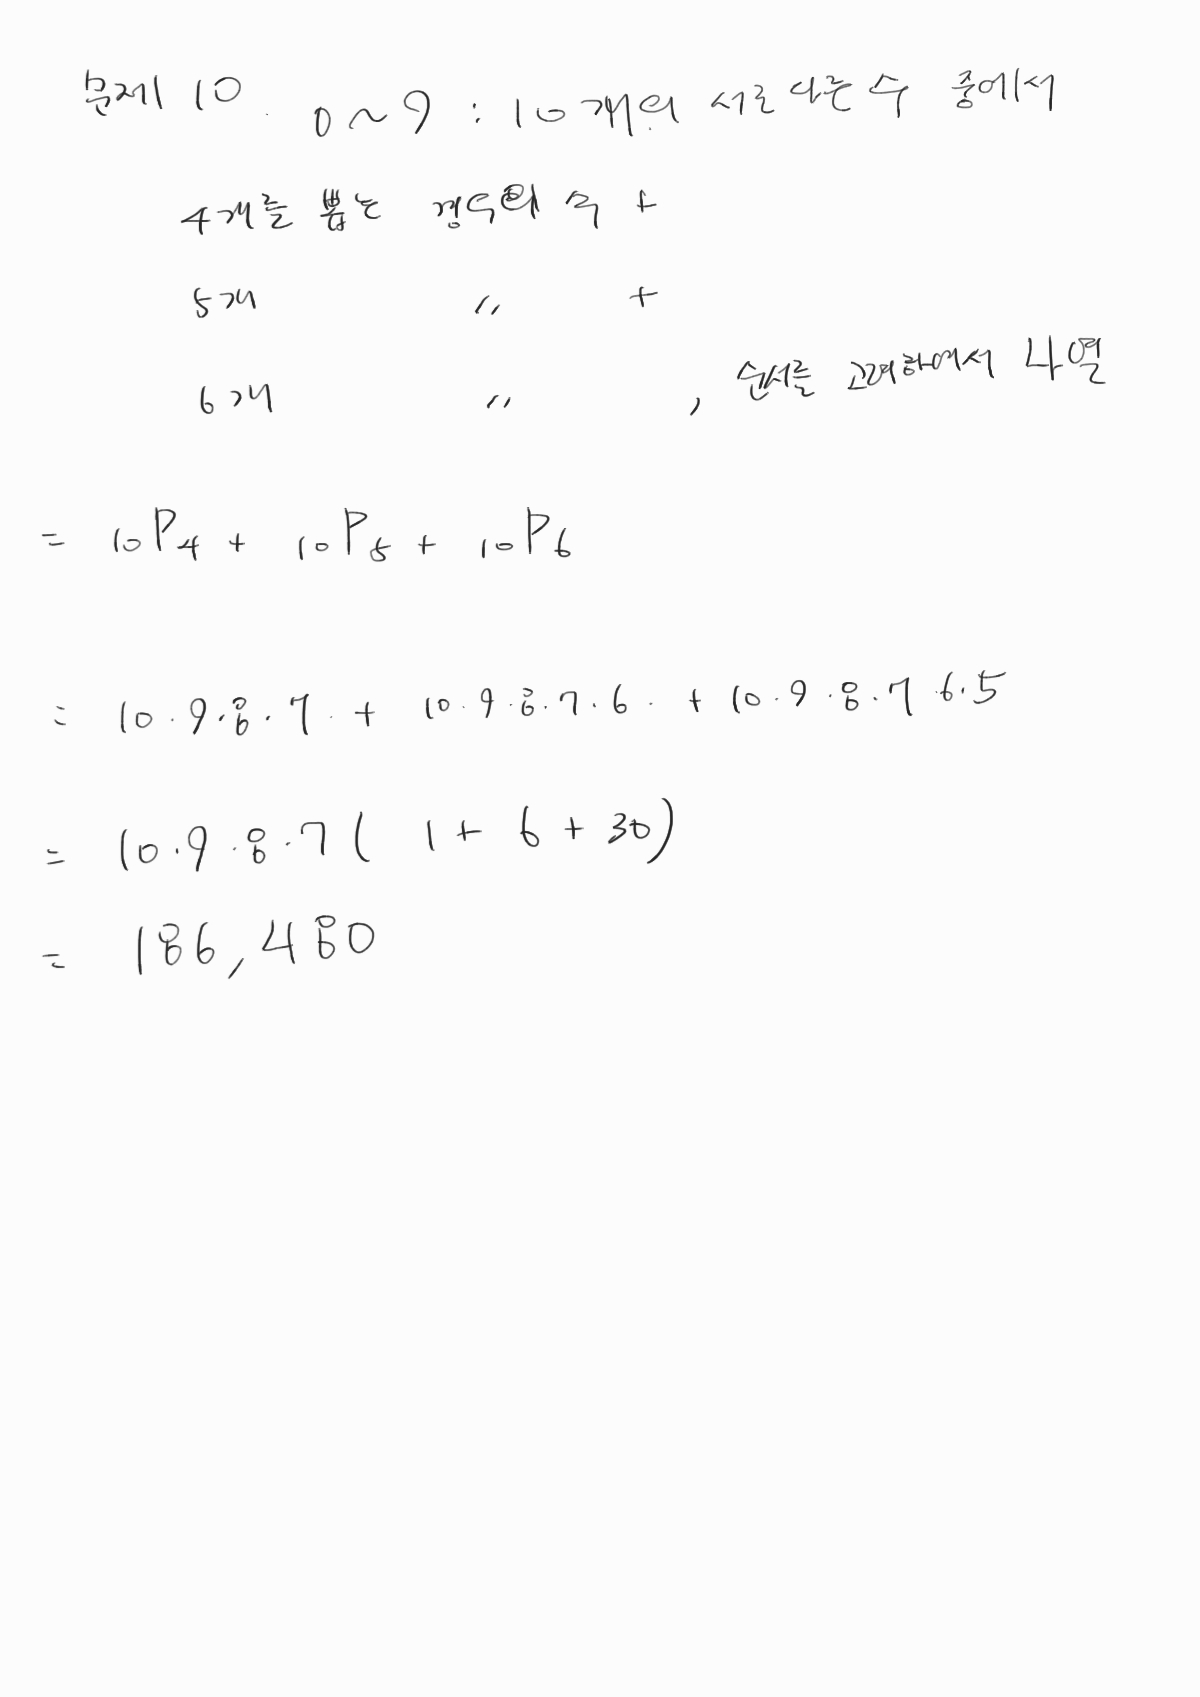 문제 10. 0~9 : 10개의 서로 다른 수 중에서
4개를 뽑는 경우의 수 +
5개 〃 +
6개 〃 , 순서를 고려하여서 나열
= ₁₀P₄ + ₁₀P₅ + ₁₀P₆
= 10·9·8·7 + 10·9·8·7·6 + 10·9·8·7 6·5
= 10·9·8·7 ( 1 + 6 + 30)
= 186,480